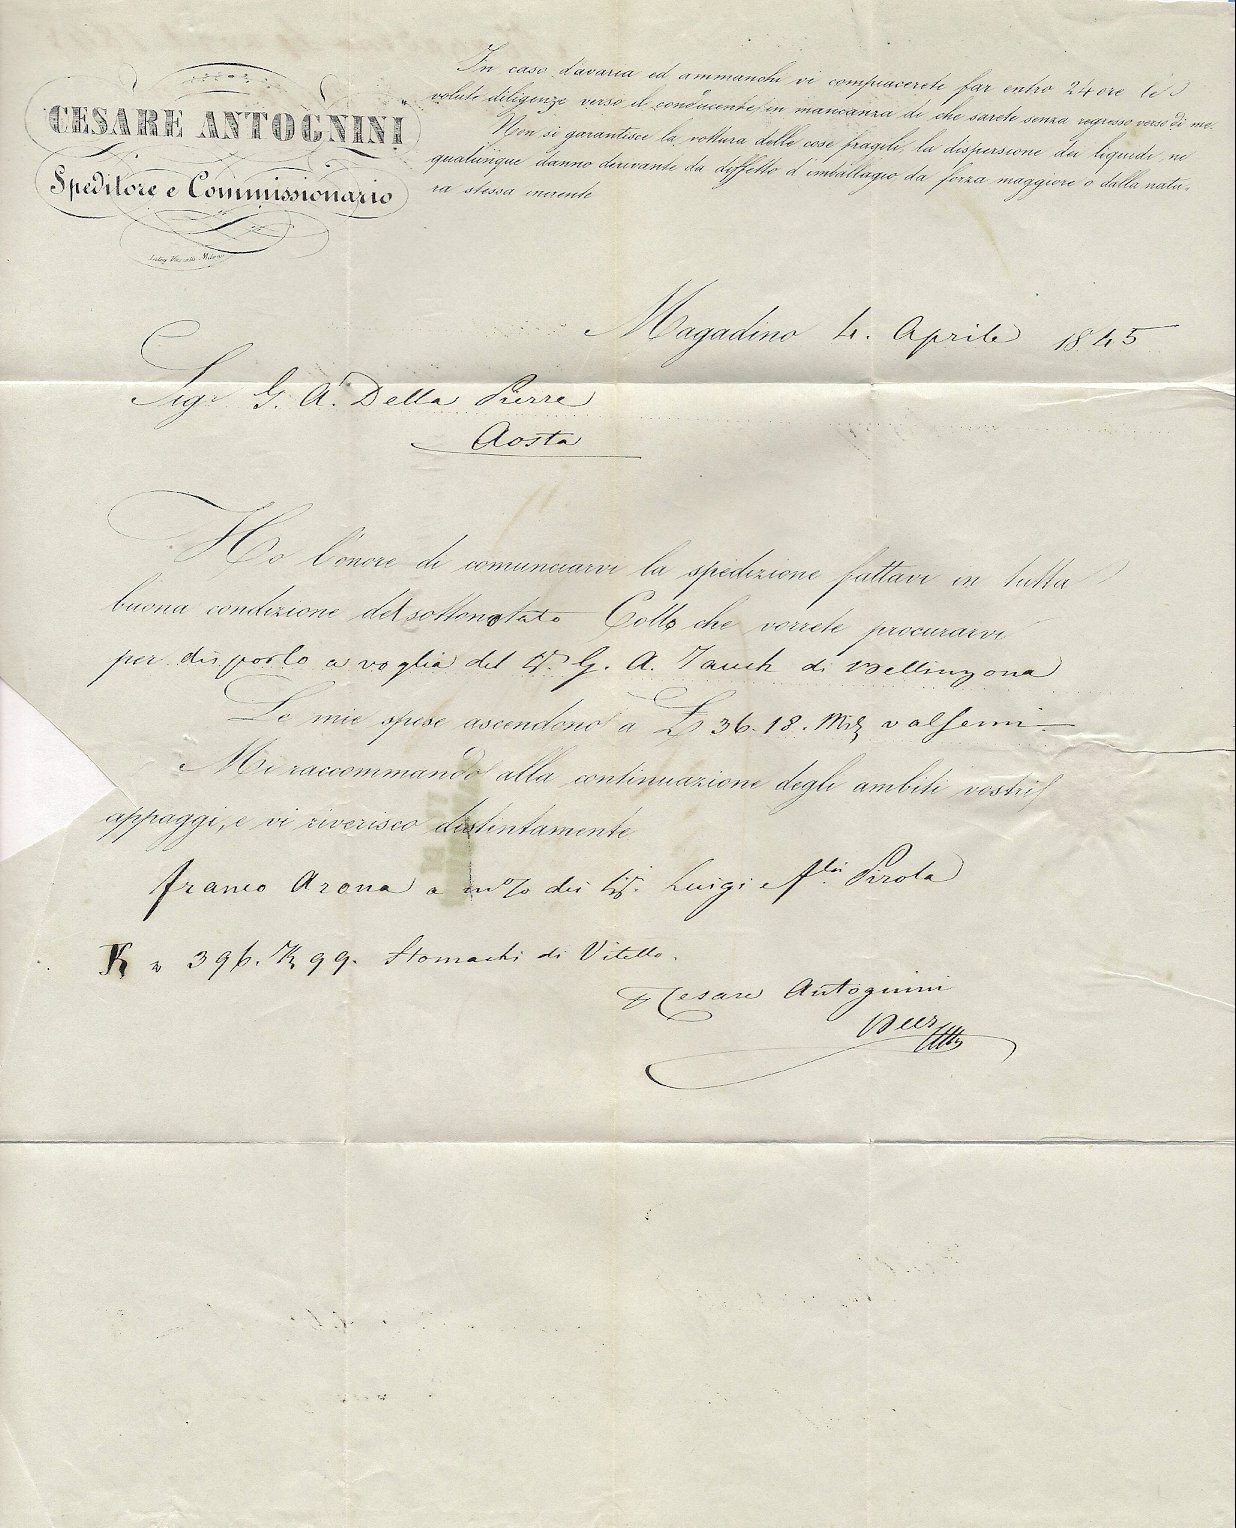 CESARE ANTOGNINI
Speditore e Commissionario
In caso d'avaria ed ammanchi vi compiacerete far entro 24 ore le
volute diligenze verso il conducente, in mancanza di che sarete senza regresso verso di me.
Non si garantisce la rottura delle cose fragili, la dispersione dei liquidi, ne
qualunque danno derivante da diffetto d'imballagio da forza maggiore o dalla natu-
ra stessa inerente
Magadino 4. Aprile 1845
Sigr G. A. Della Pierre
Aosta
Ho l'onore di comunicarvi la spedizione fattavi in tutta
buona condizione del sottonotato Collo che vorrete procurarvi
per disporlo a voglia del G. A. Jauch di Bellinzona
Le mie spese ascendono a L 36.18. Mil valsemi
Mi raccommando alla continuazione degli ambiti vostri
appaggi, e vi riverisco distintamente
franco Arona a m% dei Luigi e flli Pirola
K n 396. K 99. Stomachi di Vitello.
Cesare Antognini